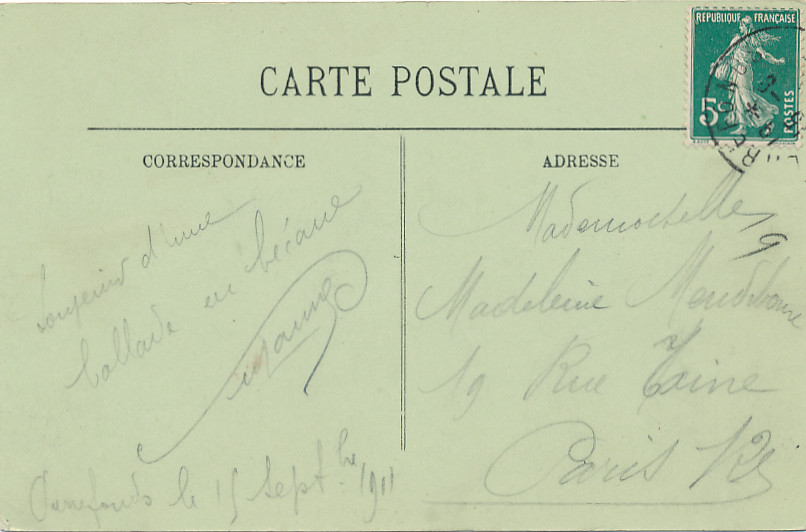 CARTE POSTALE
CORRESPONDANCE
ADRESSE
RÉPUBLIQUE FRANÇAISE
5c
POSTES
Souvenir d'une
ballade en bécane
Suzanne
le 15 Septbre 1911
Mademoiselle
Madeleine
19 Rue Taine
Paris 12e